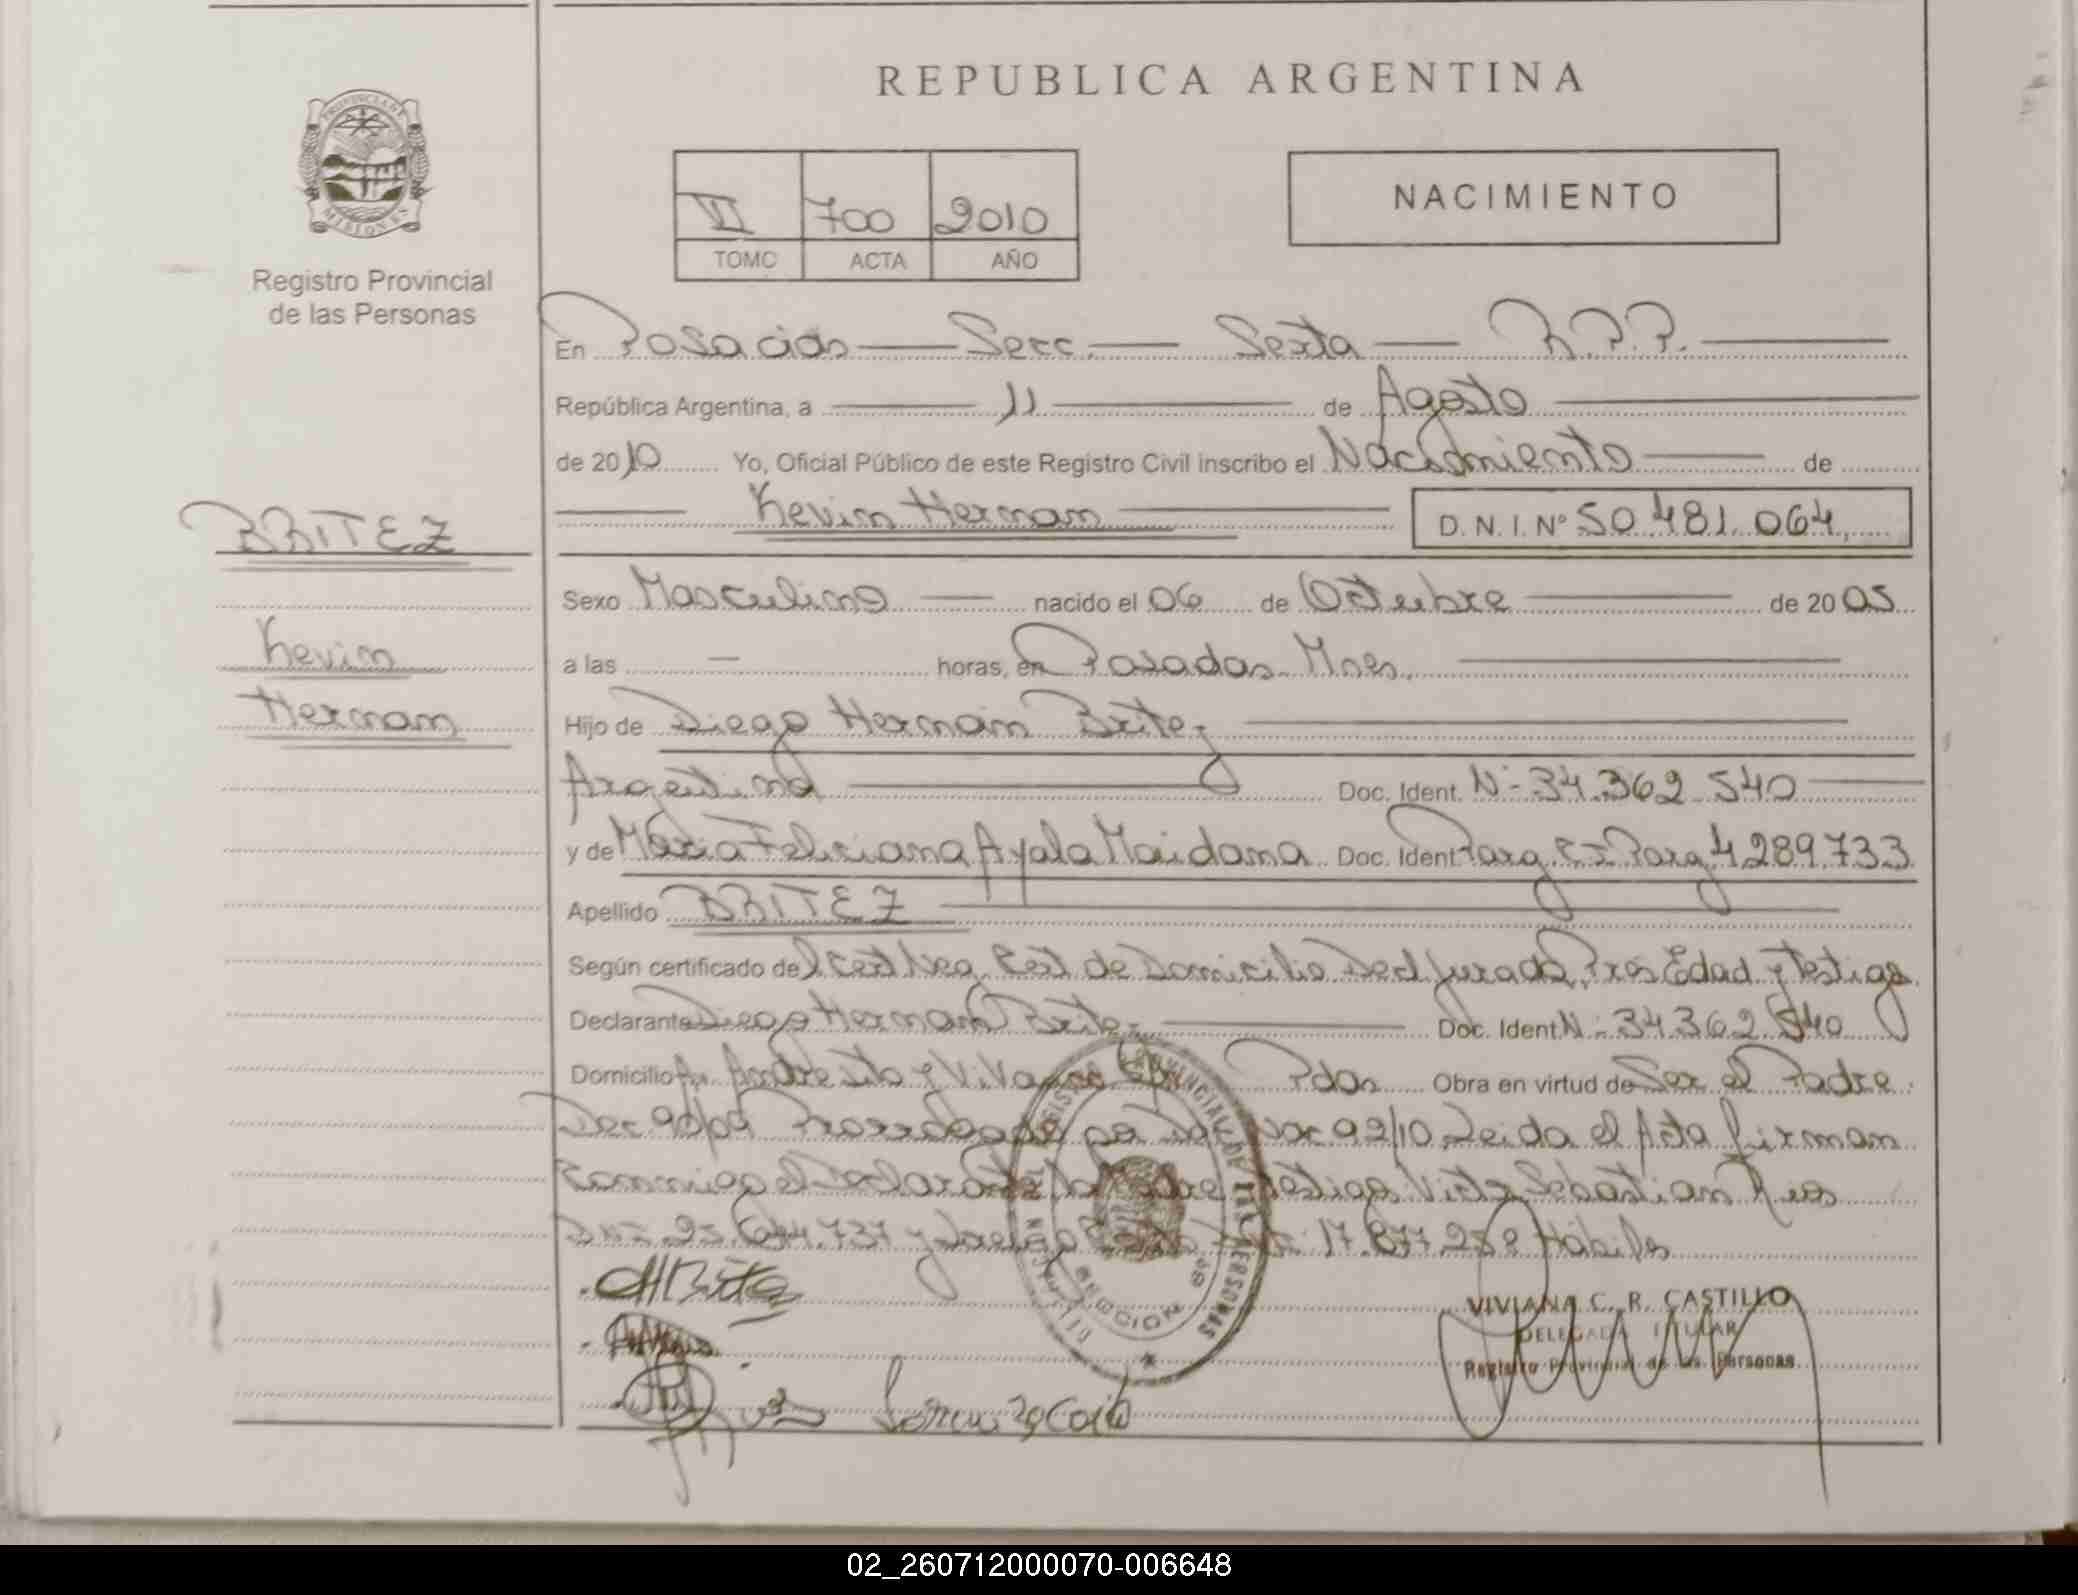 REPUBLICA ARGENTINA
PROVINCIA DE
MISIONES
Registro Provincial
de las Personas
VI 700 2010
TOMO ACTA AÑO
NACIMIENTO
En Posadas Secc. Sexta R.P.P.
República Argentina, a 11 de Agosto
de 2010 Yo, Oficial Público de este Registro Civil inscribo el Nacimiento de
Kevin Hernan D.N.I. Nº 50.481.064
BRITEZ
Kevin
Hernan
Sexo Masculino nacido el 06 de Octubre de 2005
a las — horas, en Posadas Mnes.
Hijo de Diego Hernán Britez
Argentina Doc. Ident. Nº 34.362.540
y de María Feliciana Ayala Maidana Doc. Ident. Parag. C.I. Parag 4289.733
Apellido BRITEZ
Según certificado de Cert Neg. Cert de Domicilio Decl Jurada, Pres Edad y Testigo
Declarante Diego Hernan Britez Doc. Ident Nº 34.362.540
Domicilio Av. Andresito y Pdas Obra en virtud de Ser el Padre
Dec 90/09 Prorrogado por 92/10 Leida el Acta firman
conmigo el Declarante Testigos Sebastian Rios
17.877.272 Hábiles
REGISTRO PROVINCIAL DE LAS PERSONAS
SECCION 6ª
VIVIANA C. R. CASTILLO
DELEGADA TITULAR
Registro Provincial de las Personas
02_260712000070-006648